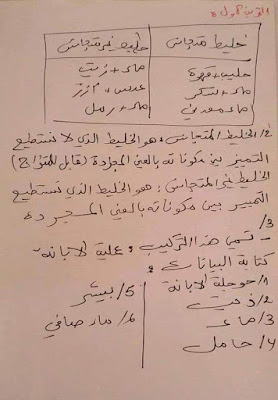 خليط متجانس	خليط غير متجانس
حليب + قهوة	ماء + زيت
ماء + سكر	عدس + أرز
ماء معدني	ماء + رمل
2/ الخليط المتجانس: هو الخليط الذي لا نستطيع
التمييز بين مكوناته بالعين المجردة
الخليط غير المتجانس: هو الخليط الذي نستطيع
التمييز بين مكوناته بالعين المجردة
3/
- تسمى هذا التركيب: عملية الابانة
كتابة البيانات:
1/ حوجلة الابانة
2/ زيت
3/ ماء
4/ حامل
5/ بيشر
6/ ماء صافي